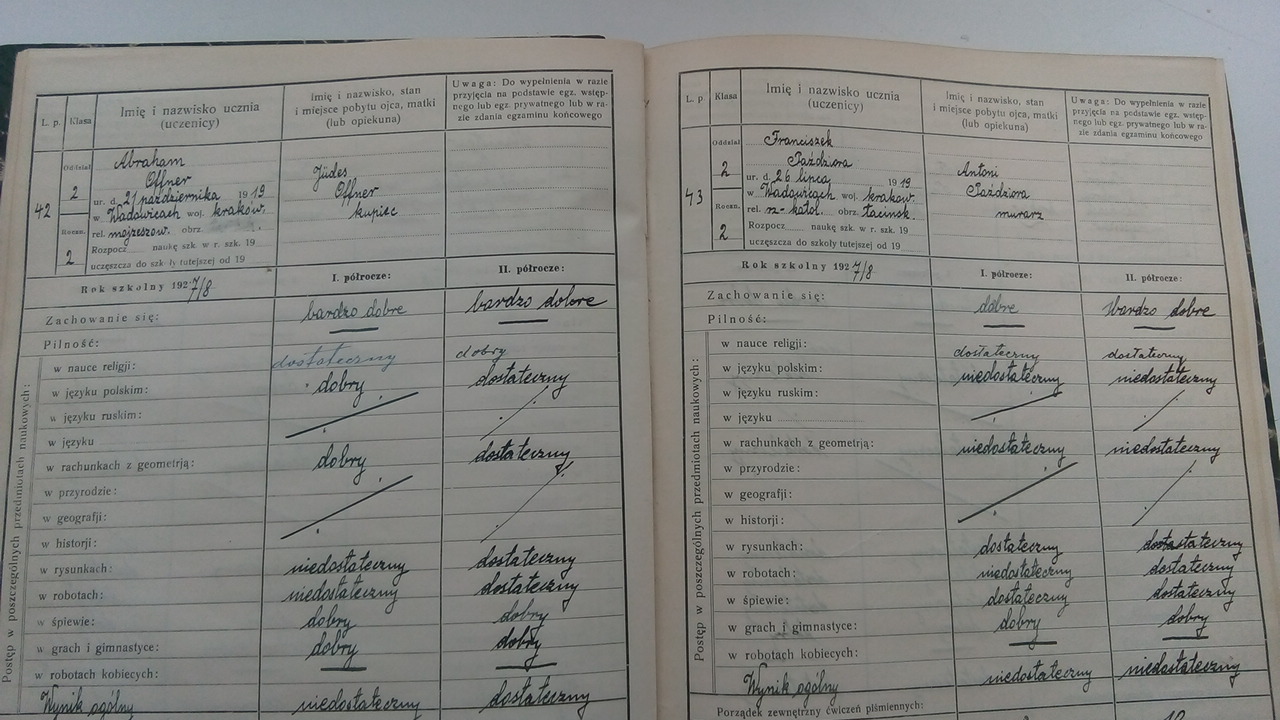 L. p.
Klasa
Imię i nazwisko ucznia
(uczenicy)
Imię i nazwisko, stan
i miejsce pobytu ojca, matki
(lub opiekuna)
Uwaga: Do wypełnienia w razie
przyjęcia na podstawie egz. wstęp-
nego lub egz. prywatnego lub w ra-
zie zdania egzaminu końcowego
42
Oddział
2
Roczn.
2
Abraham
Offner
ur. d. 21 października 1919
w Wadowicach woj. krakow.
rel. mojżeszow. obrz.
Rozpocz naukę szk. w r. szk. 19
uczęszcza do szk ły tutejszej od 19
Judes
Offner
kupiec
Rok szkolny 1927/8
I. półrocze:
II. półrocze:
Zachowanie się: bardzo dobre bardzo dobre
Pilność:
Postęp w poszczególnych przedmiotach naukowych:
w nauce religji: dostateczny dobry
w języku polskim: dobry dostateczny
w języku ruskim:
w języku
w rachunkach z geometrją: dobry dostateczny
w przyrodzie:
w geografji:
w historji:
w rysunkach: niedostateczny dostateczny
w robotach: niedostateczny dostateczny
w śpiewie: dobry dobry
w grach i gimnastyce: dobry dobry
w robotach kobiecych:
Wynik ogólny niedostateczny dostateczny
L. p
Klasa
Imię i nazwisko ucznia
(uczenicy)
Imię i nazwisko, stan
i miejsce pobytu ojca, matki
(lub opiekuna)
Uwaga: Do wypełnienia w razie
przyjęcia na podstawie egz. wstęp-
nego lub egz. prywatnego lub w ra-
zie zdania egzaminu końcowego
43
Oddział
2
Roczn.
2
Franciszek
Paździora
ur. d. 26 lipca 1919
w Wadowicach woj. krakow.
rel. rz-katol. obrz. łacinsk.
Rozpocz naukę szk. w r. szk. 19
uczęszcza do szkoły tutejszej od 19
Antoni
Paździora
murarz
Rok szkolny 1927/8
I. półrocze:
II. półrocze:
Zachowanie się: dobre bardzo dobre
Pilność:
Postęp w poszczególnych przedmiotach naukowych:
w nauce religji: dostateczny dostateczny
w języku polskim: niedostateczny niedostateczny
w języku ruskim:
w języku
w rachunkach z geometrją: niedostateczny niedostateczny
w przyrodzie:
w geografji:
w historji:
w rysunkach: dostateczny dostateczny
w robotach: niedostateczny dostateczny
w śpiewie: dostateczny dostateczny
w grach i gimnastyce: dobry dobry
w robotach kobiecych:
Wynik ogólny niedostateczny niedostateczny
Porządek zewnętrzny ćwiczeń piśmiennych: